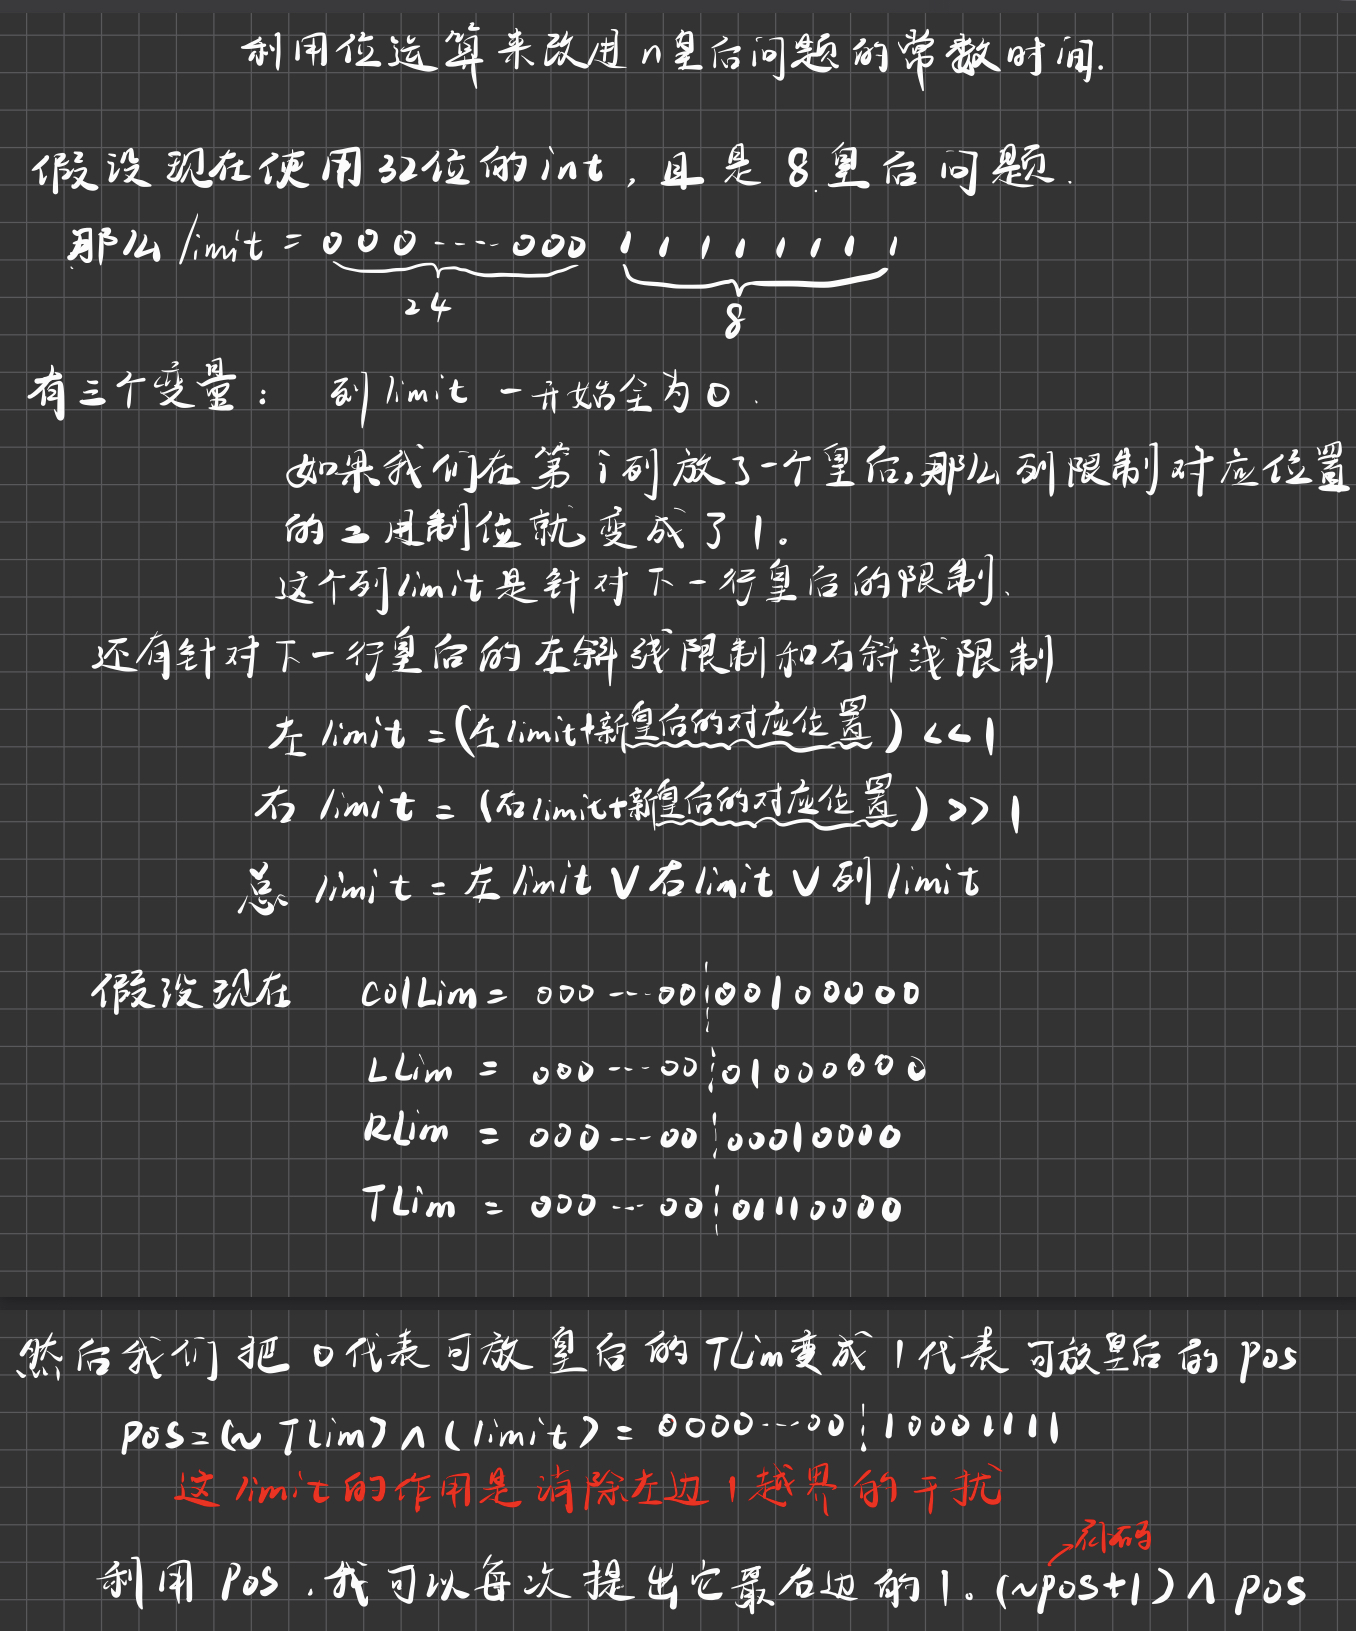 利用位运算来改进n皇后问题的常数时间.
假设现在使用32位的int，且是8皇后问题.
那么limit = 000----000 11111111
24
8
有三个变量： 列limit 一开始全为0.
如果我们在第i列放了一个皇后,那么列限制对应位置
的二进制位就变成了1。
这个列limit是针对下一行皇后的限制.
还有针对下一行皇后的左斜线限制和右斜线限制
左limit =(左limit+新皇后的对应位置) << 1
右 limit = (右limit+新皇后的对应位置) >> 1
总 limit = 左limit ∨ 右limit ∨ 列limit
假设现在 ColLim = 000---00¦00100000
LLim = 000---00¦01000000
RLim = 000---00¦00010000
TLim = 000---00¦01110000
然后我们把0代表可放皇后的TLim变成1代表可放皇后的pos
pos=(~TLim)∧(limit)= 0000---00¦10001111
这limit的作用是消除左边1越界的干扰
补码
利用pos，我可以每次提出它最右边的1。(~pos+1)∧pos